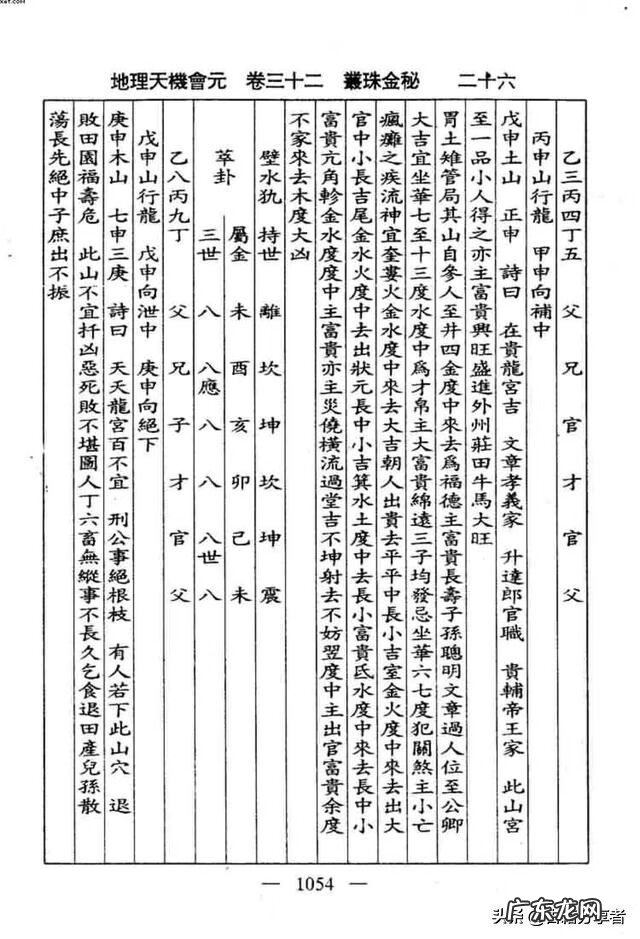 xet.com
地理天機會元 卷三十二 叢珠金秘 二十六
乙三丙四丁五 父 兄 官 才 官 父
丙申山行龍 甲申向補中
戊申土山 正申 詩曰 在貴龍宮吉 文章孝義家 升達郎官職 貴輔帝王家 此山宮
至一品小人得之亦主富貴興旺盛進外州莊田牛馬大旺
胃土雉管局其山自參人至井四金度中來去為福德主富貴長壽子孫聰明文章過人位至公卿
大吉宜坐華七至十三度水度中為才帛主大富貴綿遠三子均發忌坐華六七度犯關煞主小亡
瘋癱之疾流神宜奎婁火金水度中來去大吉朝人出貴去平平中長小吉室金火度中來去出大
官中小長吉尾金水火度中去出狀元長中小吉箕水土度中去長小富貴氐水度中來去長中小
富貴亢角軫金水度度中主富貴亦主災僥橫流過堂吉不坤射去不妨翌度中主出官富貴余度
不家來去木度大凶
壁水㺄 持世 離 坎 坤 坎 坤 震
萃卦
屬金 未 酉 亥 卯 己 未
三世 八 八應 八 八 八世 八
乙八丙九丁 父 兄 子 才 官 父
戊申山行龍 戊申向泄中 庚申向絕下
庚申木山 七申三庚 詩曰 天夭龍宮百不宜 刑公事絕根枝 有人若下此山穴 退
敗田園福壽危 此山不宜扦凶惡死敗不堪圖人丁六畜無縱事不長久乞食退田產兒孫散
蕩長先絕中子庶出不振
— 1054 —
头条
享者
广东龙网